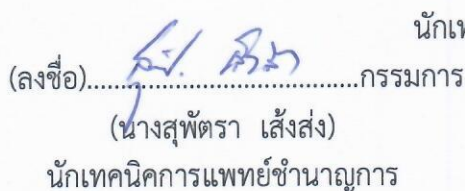 นักเท
(ลงชื่อ)..................................กรรมการ
(นางสุพัตรา เส้งส่ง)
นักเทคนิคการแพทย์ชำนาญการ